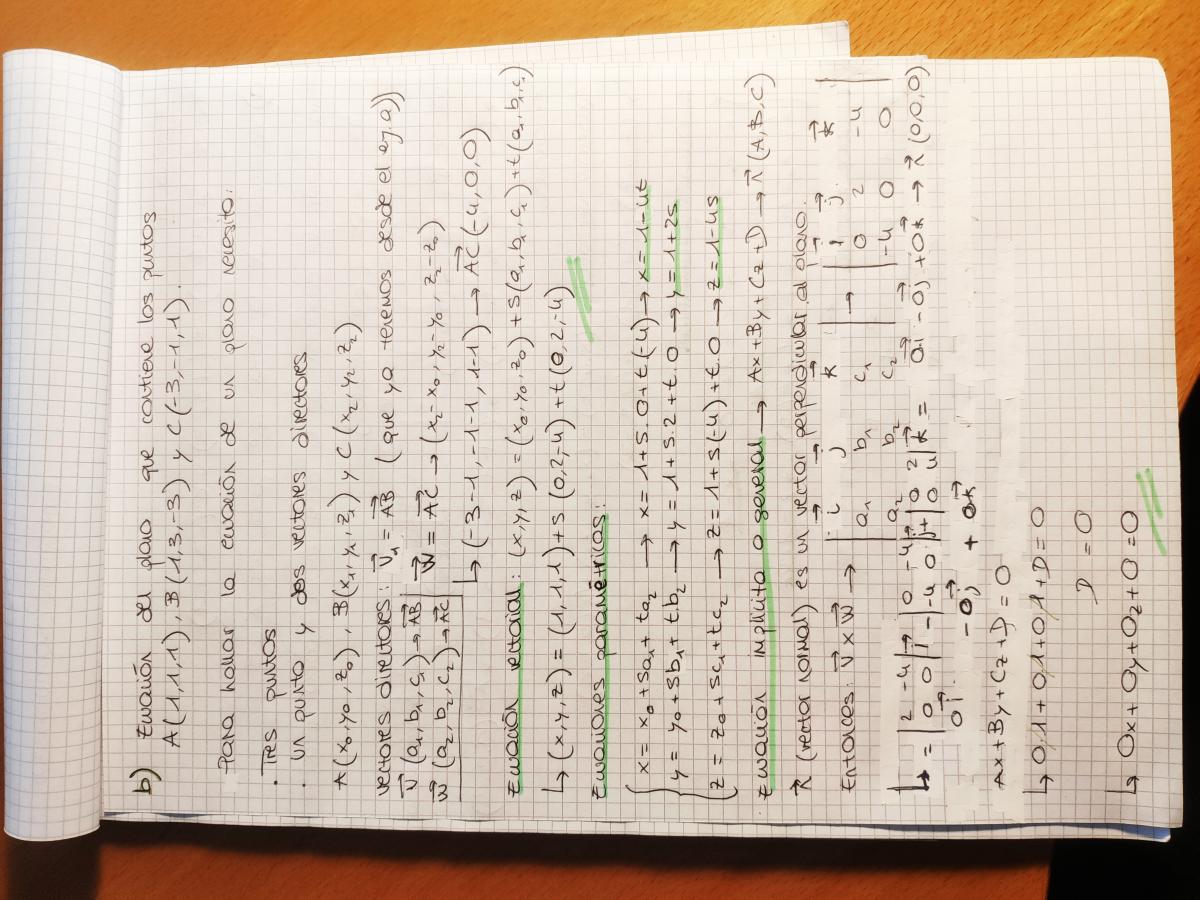 b) Ecuación del plano que contiene los puntos
A(1,1,1), B(1,3,-3) y C(-3,-1,1).
Para hallar la ecuación de un plano necesito:
· Tres puntos
· Un punto y dos vectores directores
A(x₀,y₀,z₀), B(x₁,y₁,z₁) y C(x₂,y₂,z₂)
Vectores directores: V⃗₁ = AB⃗ (que ya tenemos desde el ej.a))
V⃗(a₁,b₁,c₁) → AB⃗ W⃗ = AC⃗ → (x₂-x₀, y₂-y₀, z₂-z₀)
W⃗(a₂,b₂,c₂) → AC⃗ ↳ (-3-1, -1-1, 1-1) → AC⃗(-4,0,0)
Ecuación vectorial: (x,y,z) = (x₀,y₀,z₀) + s(a₁,b₁,c₁) + t(a₁,b₁,c₁)
↳ (x,y,z) = (1,1,1) + s(0,2,-4) + t(0,2,-4)
Ecuaciones paramétricas:
x = x₀ + sa₁ + ta₂ → x = 1+s.0+t(-4) → x = 1-4t
y = y₀ + sb₁ + tb₂ → y = 1+s.2+t.0 → y = 1+2s
z = z₀ + sc₁ + tc₂ → z = 1+s(-4)+t.0 → z = 1-4s
Ecuación implícita o general → Ax+By+Cz+D → n⃗(A,B,C)
n⃗ (vector normal) es un vector perpendicular al plano.
Entonces: v⃗ x w⃗ → | i⃗ j⃗ k⃗ | → | i⃗ j⃗ k⃗ |
| a₁ b₁ c₁ | | 0 2 -4 |
| a₂ b₂ c₂ | | -4 0 0 |
↳ = | 2 -4 | i⃗ - | 0 -4 | j⃗ + | 0 2 | k⃗ = 0i⃗ - 0j⃗ + 0k⃗ → n⃗(0,0,0)
| 0 0 | | -4 0 | | 0 4 |
0i⃗ - 0j⃗ + 0k⃗
Ax+By+Cz+D=0
↳ 0.1+0.1+0.1+D=0
D=0
↳ 0x+0y+0z+0=0